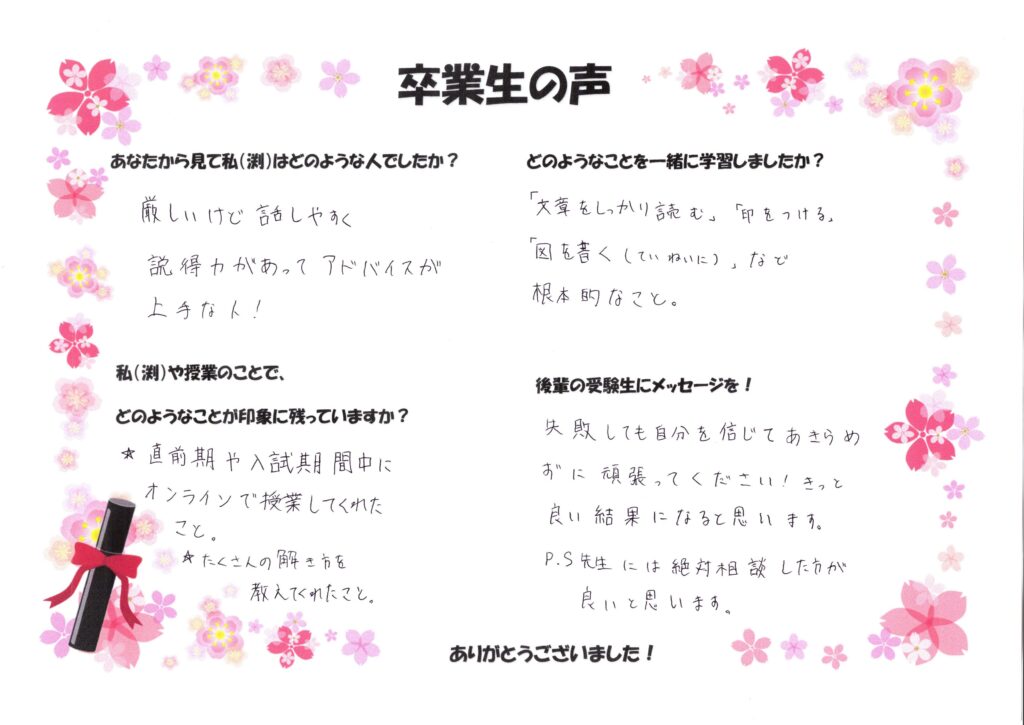 卒業生の声
あなたから見て私（渕）はどのような人でしたか？
厳しいけど話しやすく
説得力があってアドバイスが
上手な人！
どのようなことを一緒に学習しましたか？
「文章をしっかり読む」「印をつける」
「図を書く（ていねいに）」など
根本的なこと。
私（渕）や授業のことで、
どのようなことが印象に残っていますか？
☆直前期や入試期間中に
オンラインで授業してくれた
こと。
☆たくさんの解き方を
教えてくれたこと。
後輩の受験生にメッセージを！
失敗しても自分を信じてあきらめ
ずに頑張ってください！きっと
良い結果になると思います。
P.S先生には絶対相談した方が
良いと思います。
ありがとうございました！